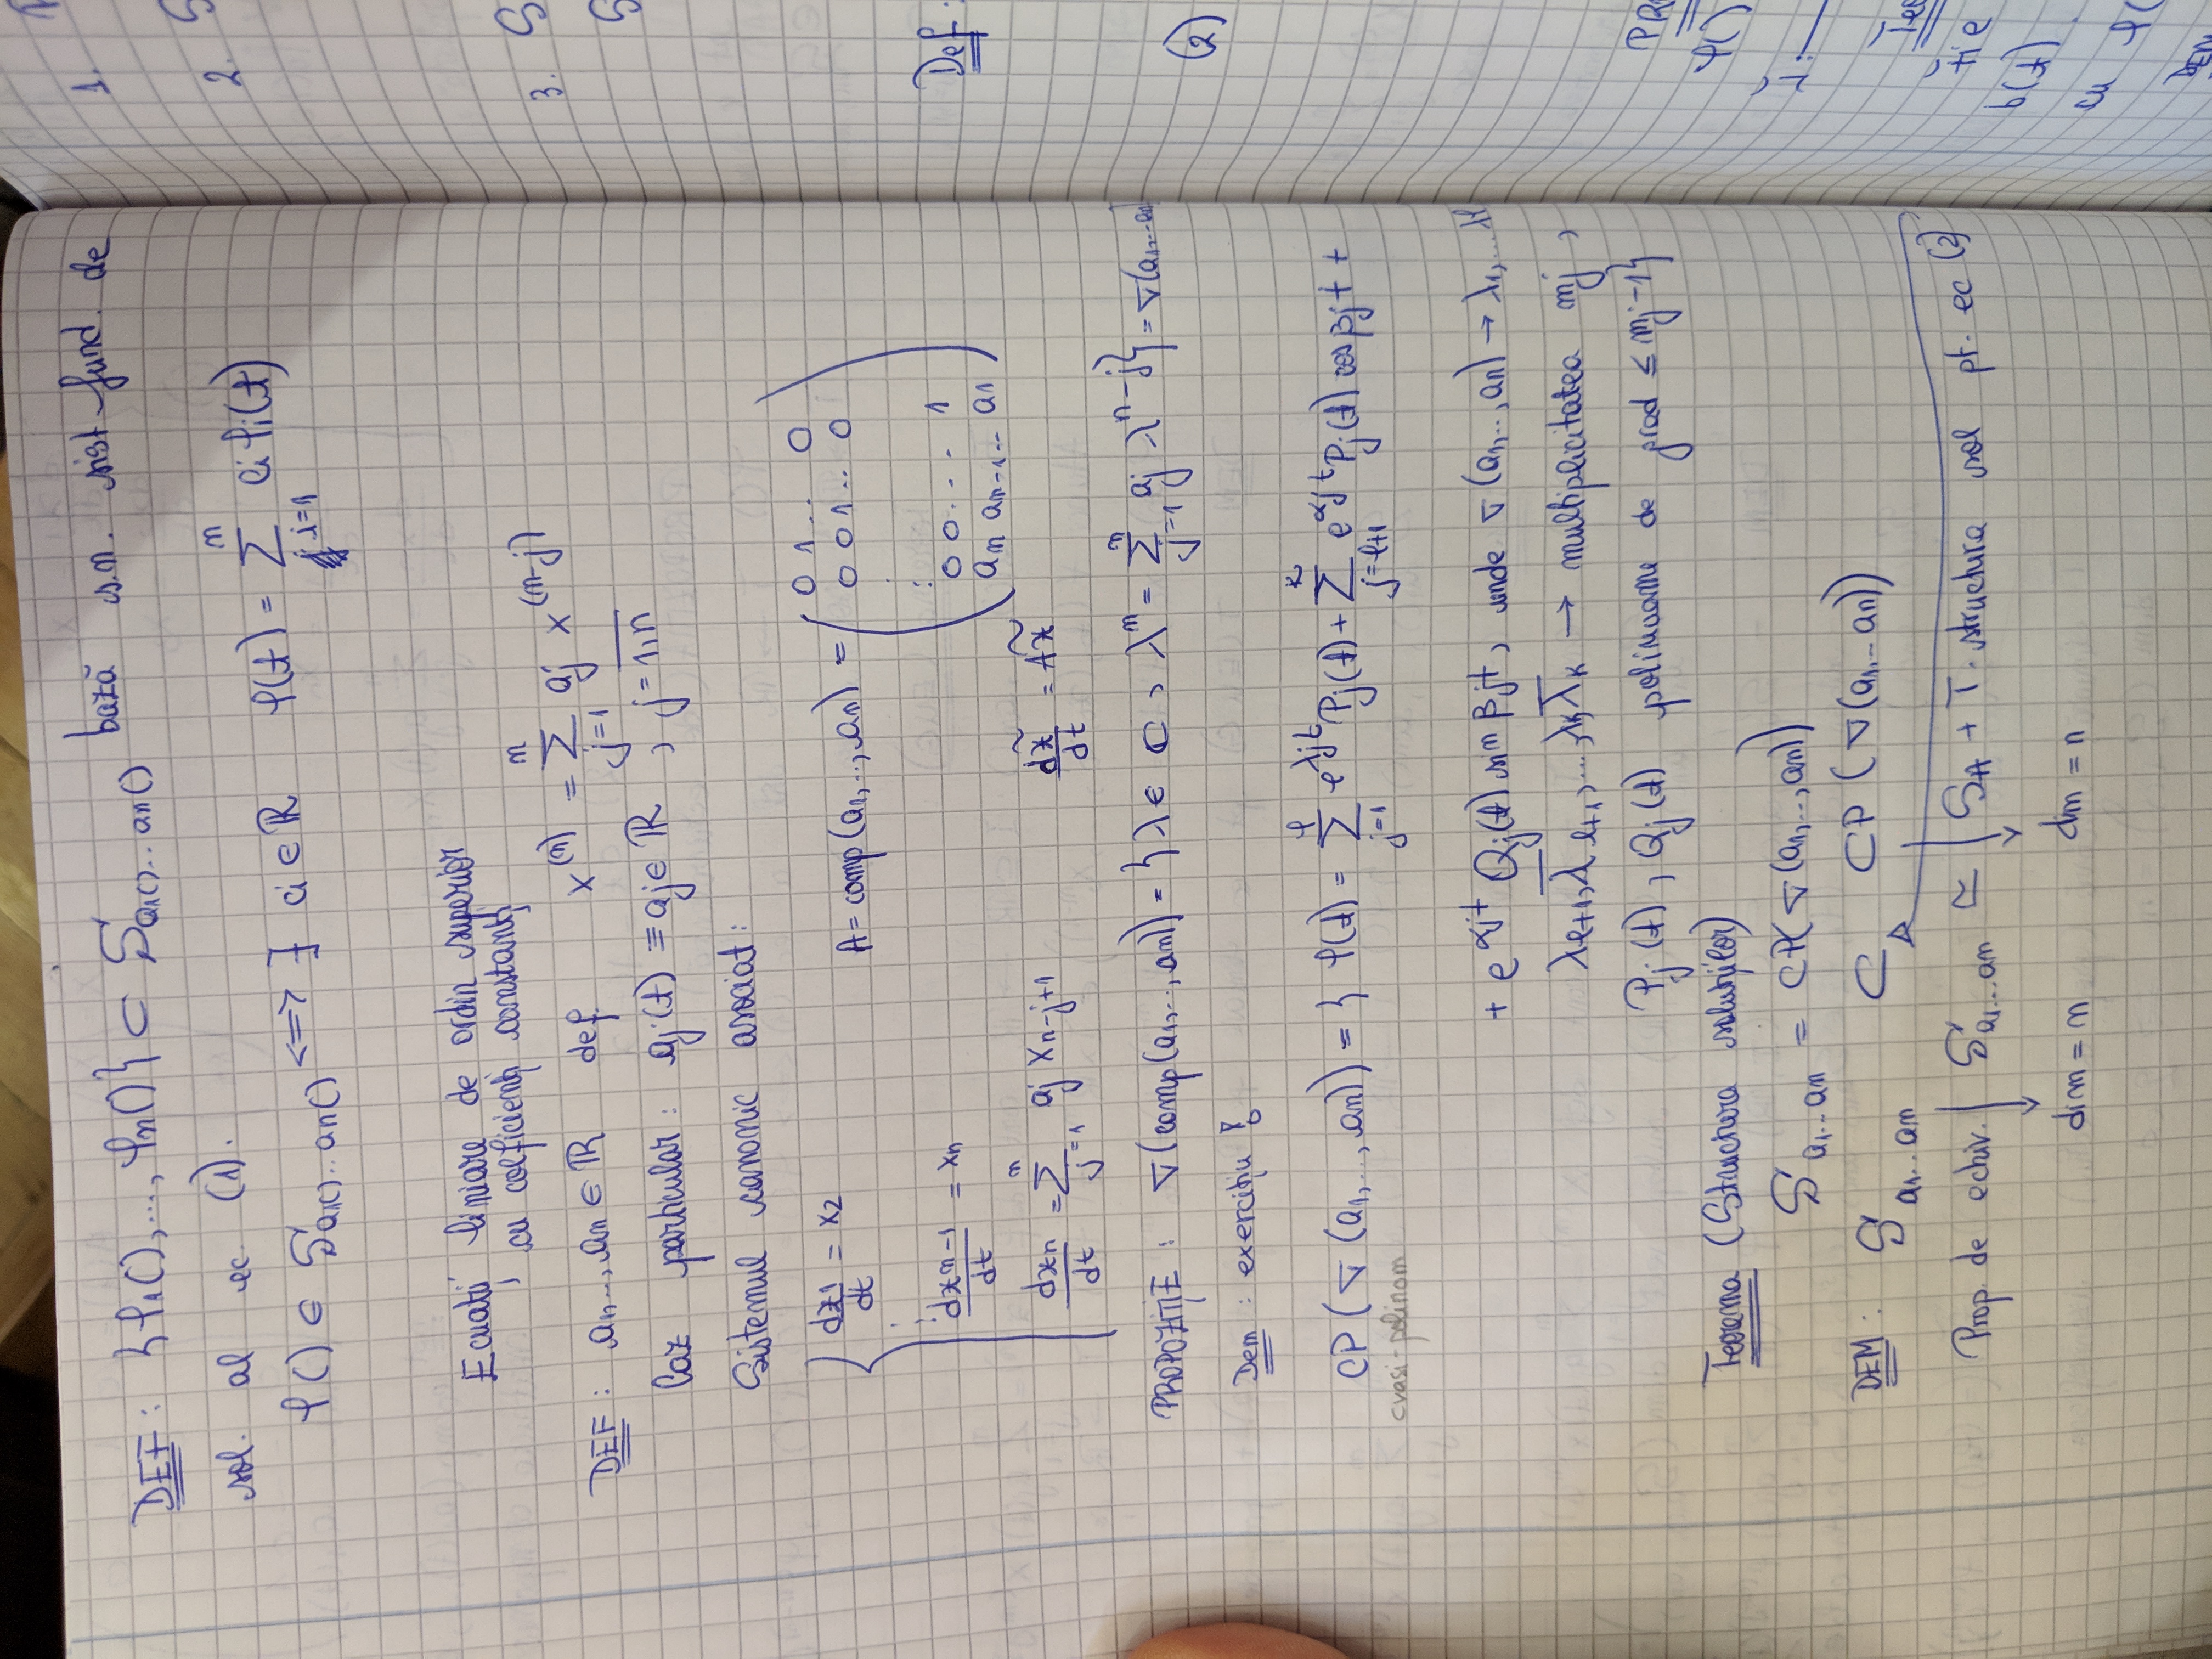 DEF : {φ1(),..., φn()} ⊂ S a1()...an() bază s.n. sist fund. de
sol. al ec. (1).
φ() ∈ S a1()...an() <=> ∃ ci ∈ ℝ φ(t) = Σ_{i=1}^{n} ci φi(t)
Ecuații liniare de ordin superior
cu coeficienți constanți
DEF : a1,..., an ∈ ℝ def. x^(n) = Σ_{j=1}^{n} aj x^(n-j)
Caz particular : aj(t) ≡ aj ∈ ℝ , j = \overline{1,n}
Sistemul canonic asociat :
{ dx1/dt = x2
⋮
dxn-1/dt = xn
dxn/dt = Σ_{j=1}^{n} aj xn-j+1
A = comp(a1,..., an) = ( 0 1 ... 0
0 0 1 .. 0
⋮
0 0 ... 1
an an-1 ... a1 )
dx̃/dt = Ax̃
PROPOZIȚIE : σ(comp(a1,..., an)) = {λ ∈ ℂ, λ^n = Σ_{j=1}^{n} aj λ^{n-j}} = σ(a1,...an)
Dem : exercițiu !
CP(σ(a1,..., an)) = { φ(t) = Σ_{j=1}^{ℓ} e^{λjt} Pj(t) + Σ_{j=ℓ+1}^{k} e^{αjt} Pj(t) cos βjt +
cvasi-polinom
+ e^{αjt} Qj(t) sin βjt, unde σ(a1,..., an) → λ1,...λℓ
λℓ+1, λ̄ℓ+1,..., λk, λ̄k → multiplicitatea mj ,
Pj(t), Qj(t) polinoame de grad ≤ mj-1}
Teorema (Structura soluțiilor)
S a1...an = CP(σ(a1,..., an))
DEM : S a1...an ⊂ CP(σ(a1...an))
Prop. de echiv. S a1...an ≃ SA + T. structura sol pt. ec (2)
dim = n dim = n
1.
2. S
3. S
S
Def :
(2)
PR
φ(
b(t)
cu φ(
DEM